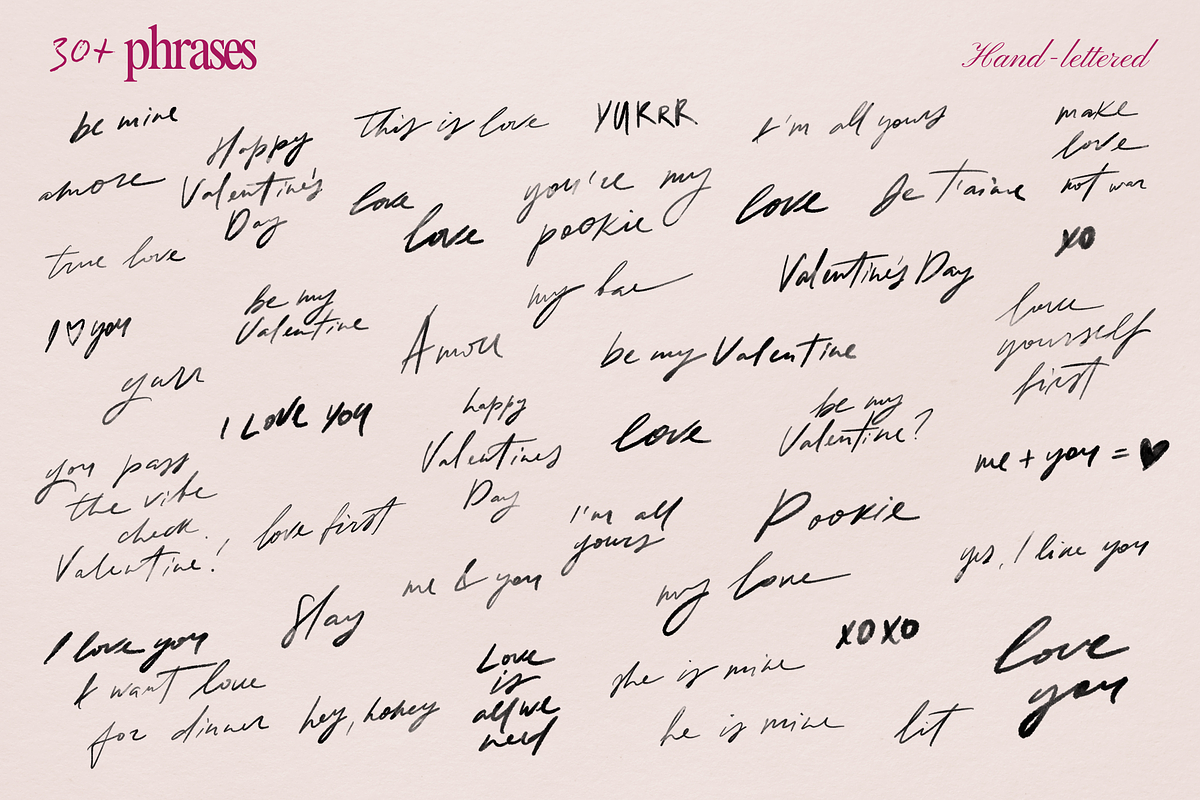 30+ phrases
Hand-lettered
be mine
Happy
Valentine's
Day
This is love
YUKRR
I'm all yours
make
love
not war
amore
love
love
you're my
pookie
love
Je t'aime
xo
true love
my bae
Valentine's Day
I♡you
be my
Valentine
Amour
be my Valentine
love
yourself
first
yurr
I LOVE YOU
happy
Valentines
Day
love
be my
Valentine?
me + you = ♥
you pass
the vibe
check.
Valentine!
love first
I'm all
yours
Pookie
yes, I like you
me & you
my love
Slay
I love you
XOXO
love
you
I want love
for dinner
hey, honey
Love
is
all we
need
she is mine
he is mine
lit